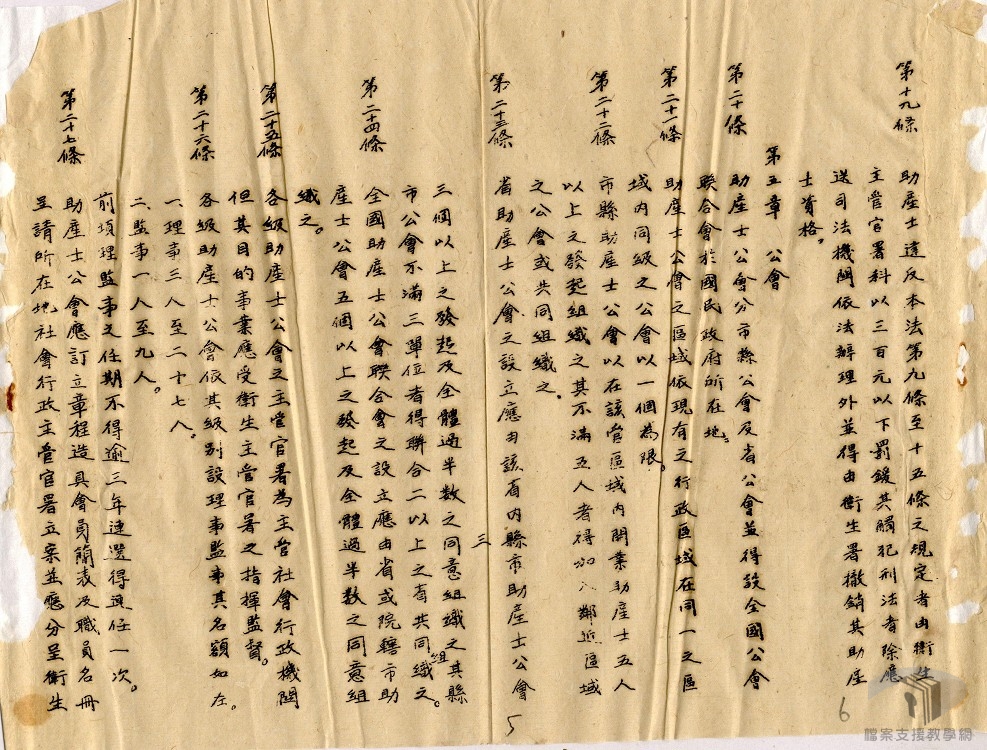 第十九條
助產士違反本法第九條至十五條之規定者由衛生
主管官署科以三百元以下罰鍰其觸犯刑法者除應
送司法機關依法辦理外並得由衛生署撤銷其助產
士資格。
第五章　公會
第二十條
助產士公會分市縣公會及省公會並得設全國公會
聯合會於國民政府所在地。
第二十一條
助產士公會之區域依現有之行政區域在同一之區
域內同級之公會以一個為限。
第二十二條
市縣助產士公會以在該管區域內開業助產士五人
以上之發起組織之其不滿五人者得加入鄰近區域
之公會或共同組織之。
第二十三條
省助產士公會之設立應由該省內縣市助產士公會
三
三個以上之發起及全體過半數之同意組織之其縣
市公會不滿三單位者得聯合二以上之省共同組織之。
第二十四條
全國助產士公會聯合會之設立應由省或院轄市助
產士公會五個以上之發起及全體過半數之同意組
織之。
第二十五條
各級助產士公會之主管官署為主管社會行政機關
但其目的事業應受衛生主管官署之指揮監督。
第二十六條
各級助產士公會依其級別設理事監事其名額如左。
一、理事三人至二十七人。
二、監事一人至九人。
前項理監事之任期不得逾三年連選得連任一次。
第二十七條
助產士公會應訂立章程造具會員簡表及職員名冊
呈請所在地社會行政主管官署立案並應分呈衛生
5
6
檔案支援教學網